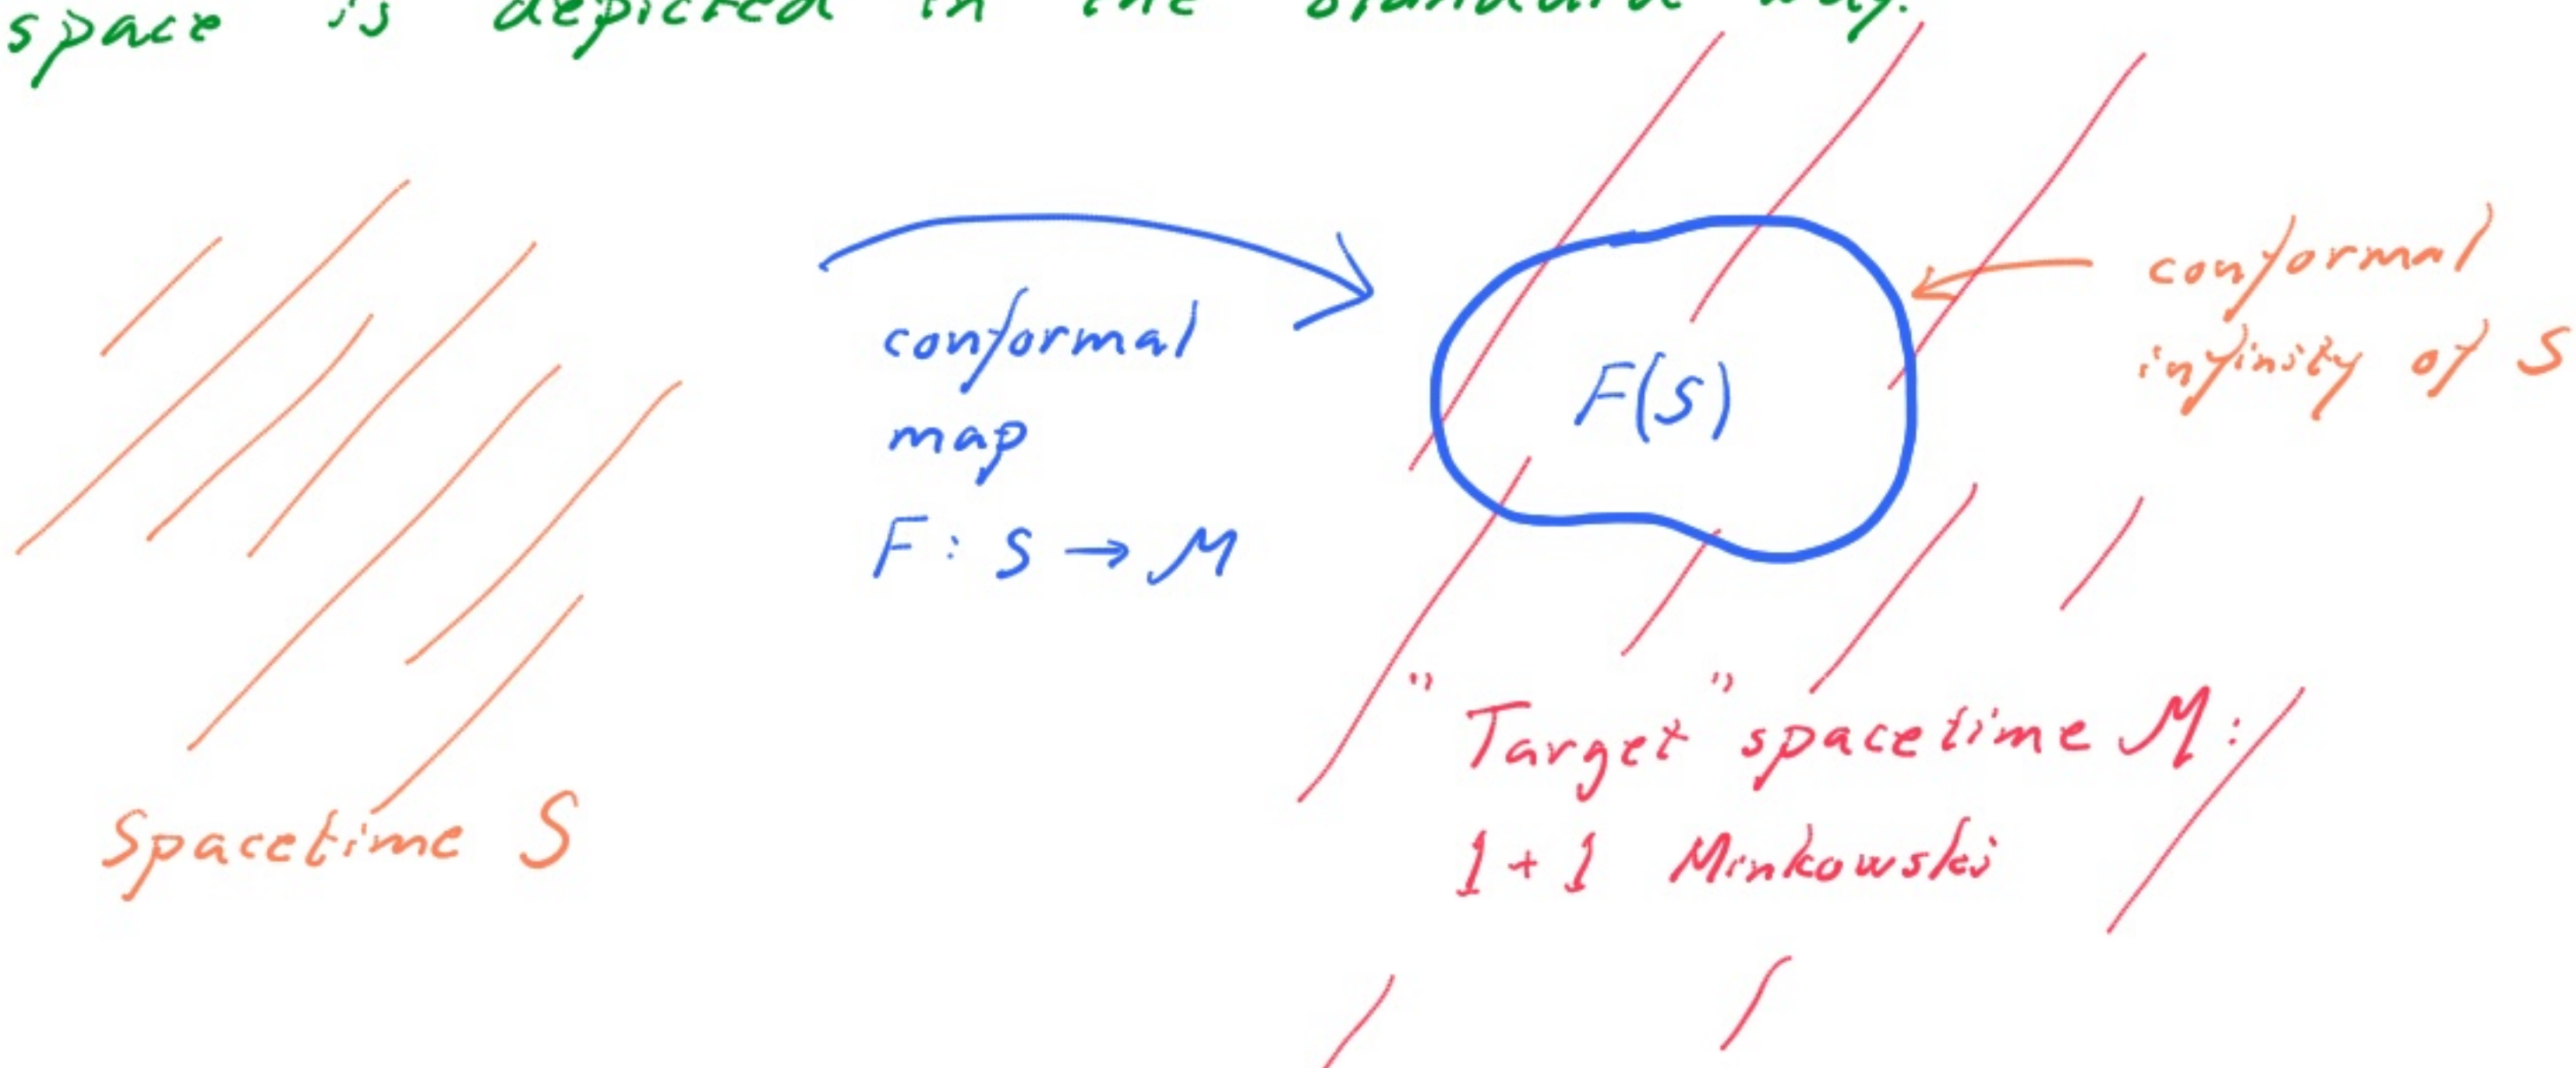 space is depicted in the standard way.
conformal
map
F : S → M
F(S)
conformal
infinity of S
"Target" spacetime M:
1 + 1 Minkowski
Spacetime S